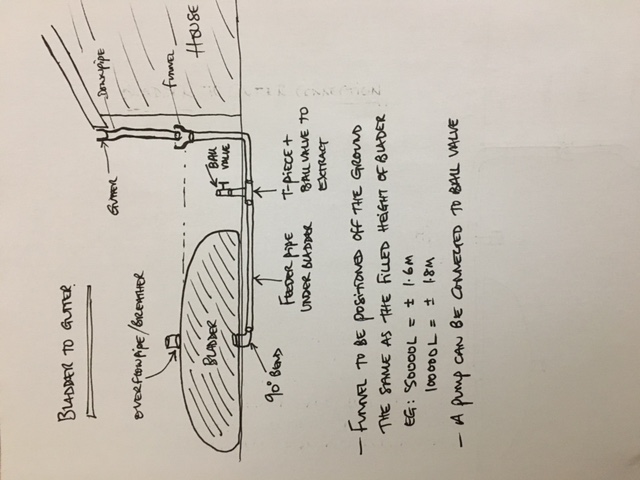 BLADDER TO GUTTER
GUTTER
DOWNPIPE
FUNNEL
HOUSE
GUTTER CONNECTION
OVERFLOWPIPE/BREATHER
BALL
VALVE
BLADDER
90° BEND
FEEDER PIPE
UNDER BLADDER
T-PIECE +
BALL VALVE TO
EXTRACT
- FUNNEL TO BE POSITIONED OFF THE GROUND
THE SAME AS THE FILLED HEIGHT OF BLADER
EG: 50000L = ± 1.6M
100000L = ± 1.8M
- A PUMP CAN BE CONNECTED TO BALL VALVE